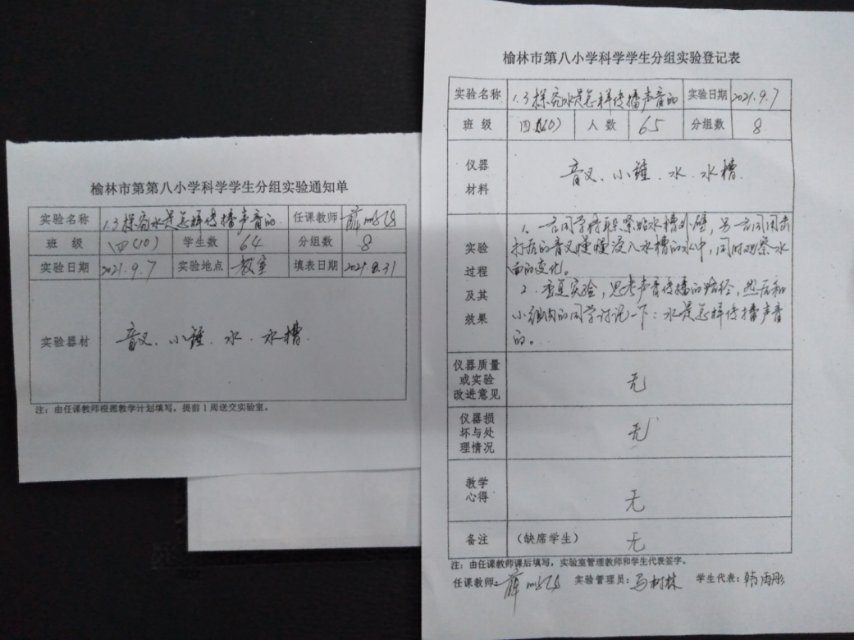 榆林市第第八小学科学学生分组实验通知单
实验名称 1.3探究水是怎样传播声音的 任课教师 薛
班 级 四(10) 学生数 64 分组数 8
实验日期 2021.9.7 实验地点 教室 填表日期 2021.8.31
实验器材 音叉、小锤、水、水槽.
注：由任课教师根据教学计划填写，提前1周送交实验室。
榆林市第八小学科学学生分组实验登记表
实验名称 1.3探究水是怎样传播声音的 实验日期 2021.9.7
班 级 四(10) 人 数 65 分组数 8
仪器
材料
音叉、小锤、水、水槽.
实验
过程
及其
效果
1、一名同学将耳朵紧贴水槽外壁，另一名同学用击
打后的音叉慢慢浸入水槽的水中，同时观察水
面的变化。
2、重复实验，思考声音传播的路径，然后和
小组内的同学讨论一下：水是怎样传播声音
的。
仪器质量
或实验
改进意见
无
仪器损
坏与处
理情况
无
教学
心得
无
备注 (缺席学生) 无
注：由任课教师课后填写，实验室管理教师和学生代表签字。
任课教师：薛 实验管理员：马树林 学生代表：韩雨彤